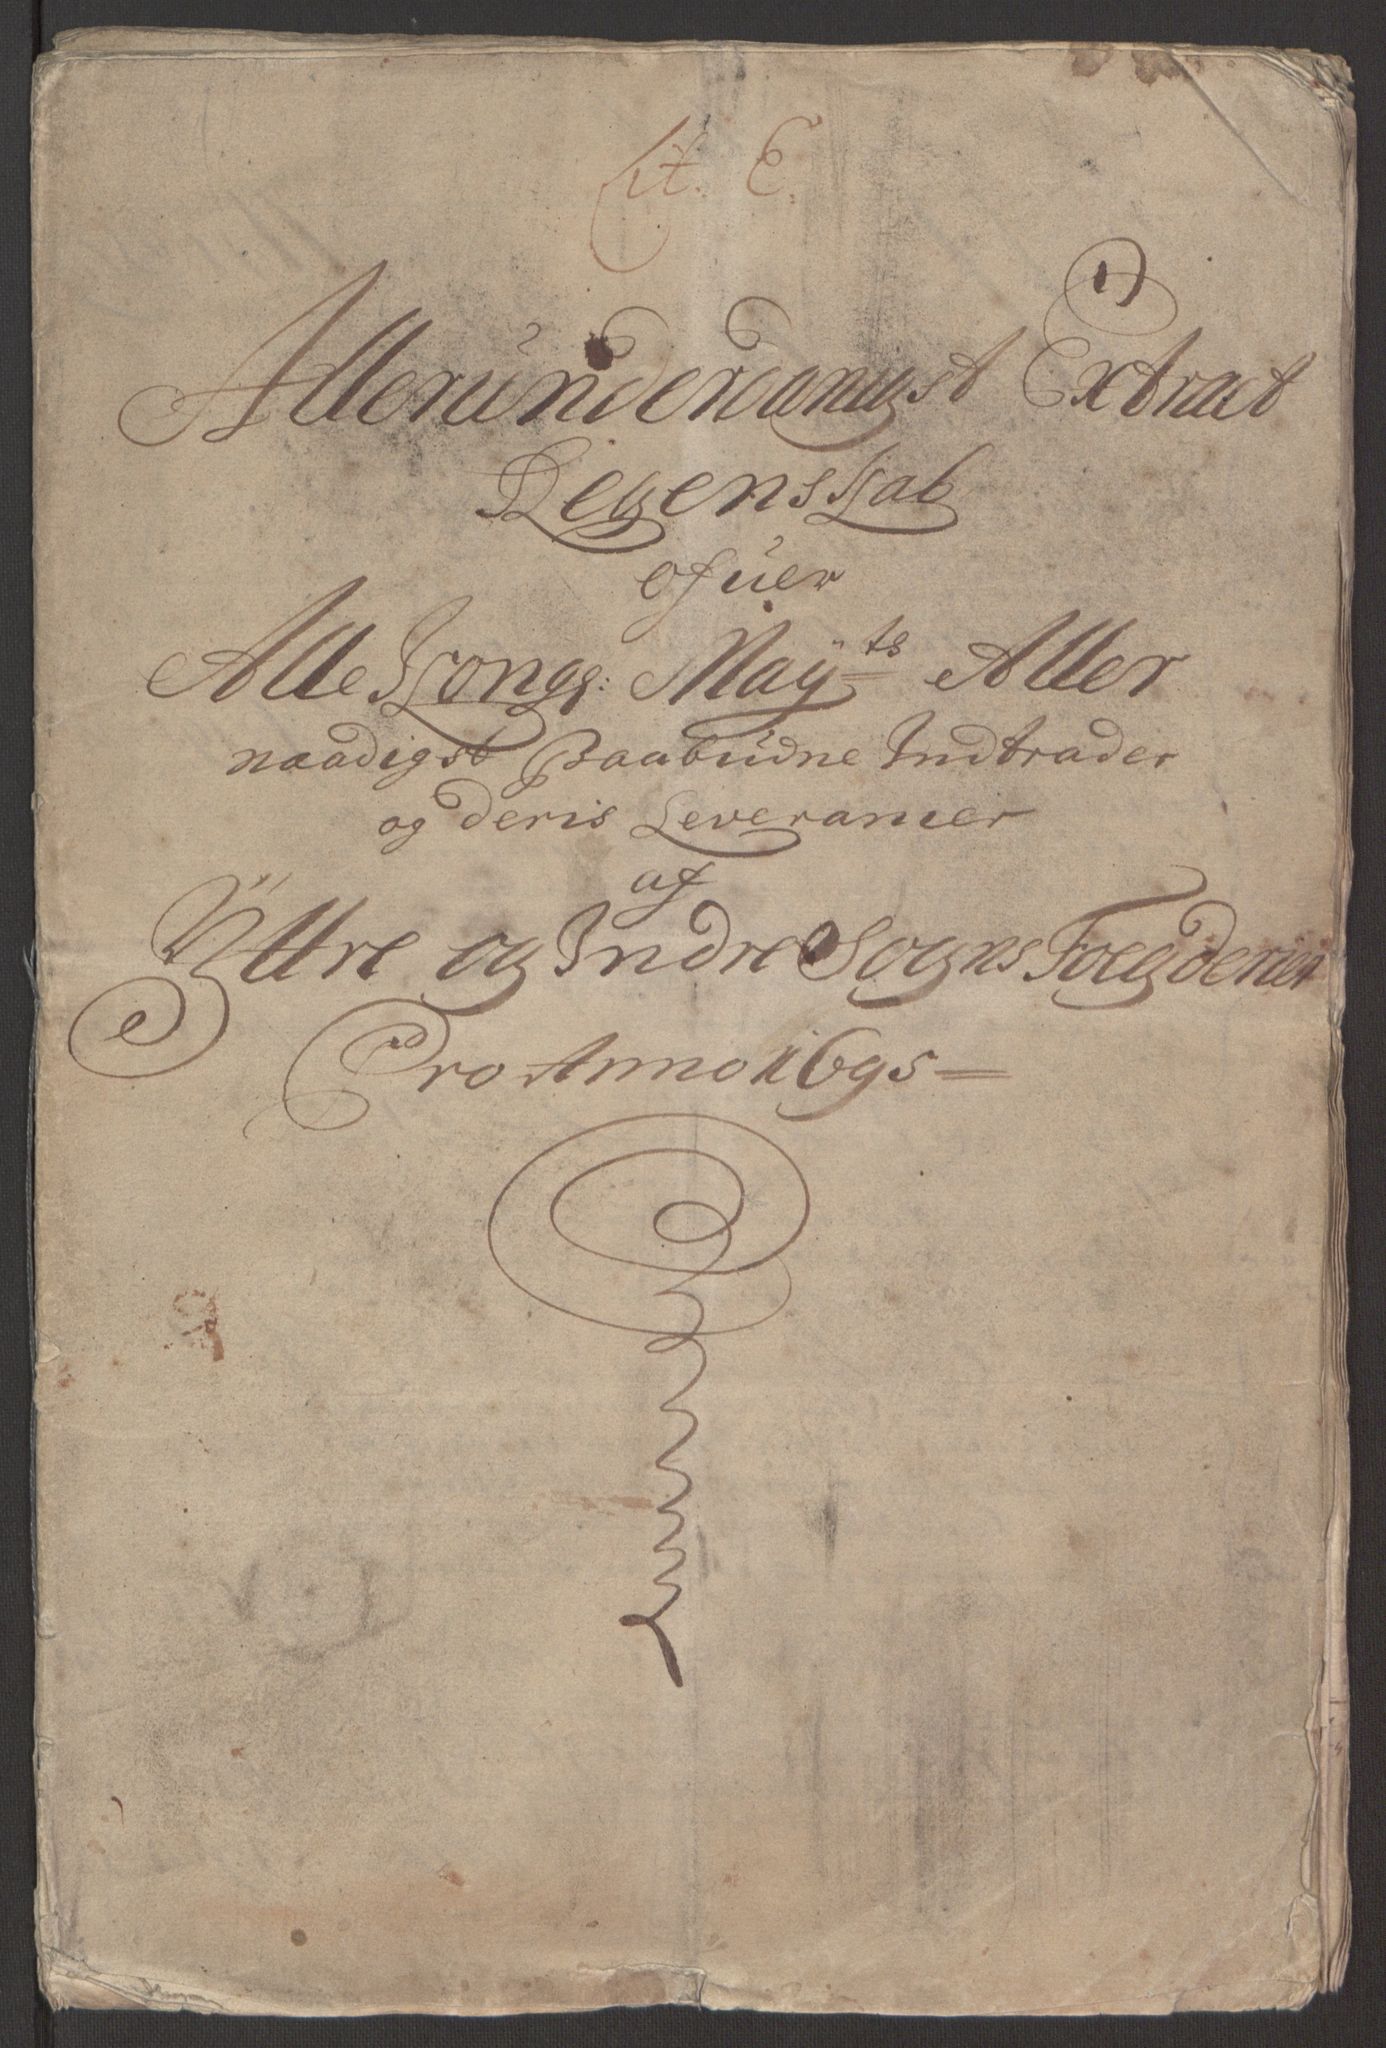 Lit. E.
1)
Allerúnderdanigst Extract
Regenskab
ofúer
Alle Kongl: Maÿ:ts Aller
naadigst Paabúdne Indtrader
og deris Leverancier
af
Ÿttre og Indre Sogns Foegderier
Pro Anno 1695